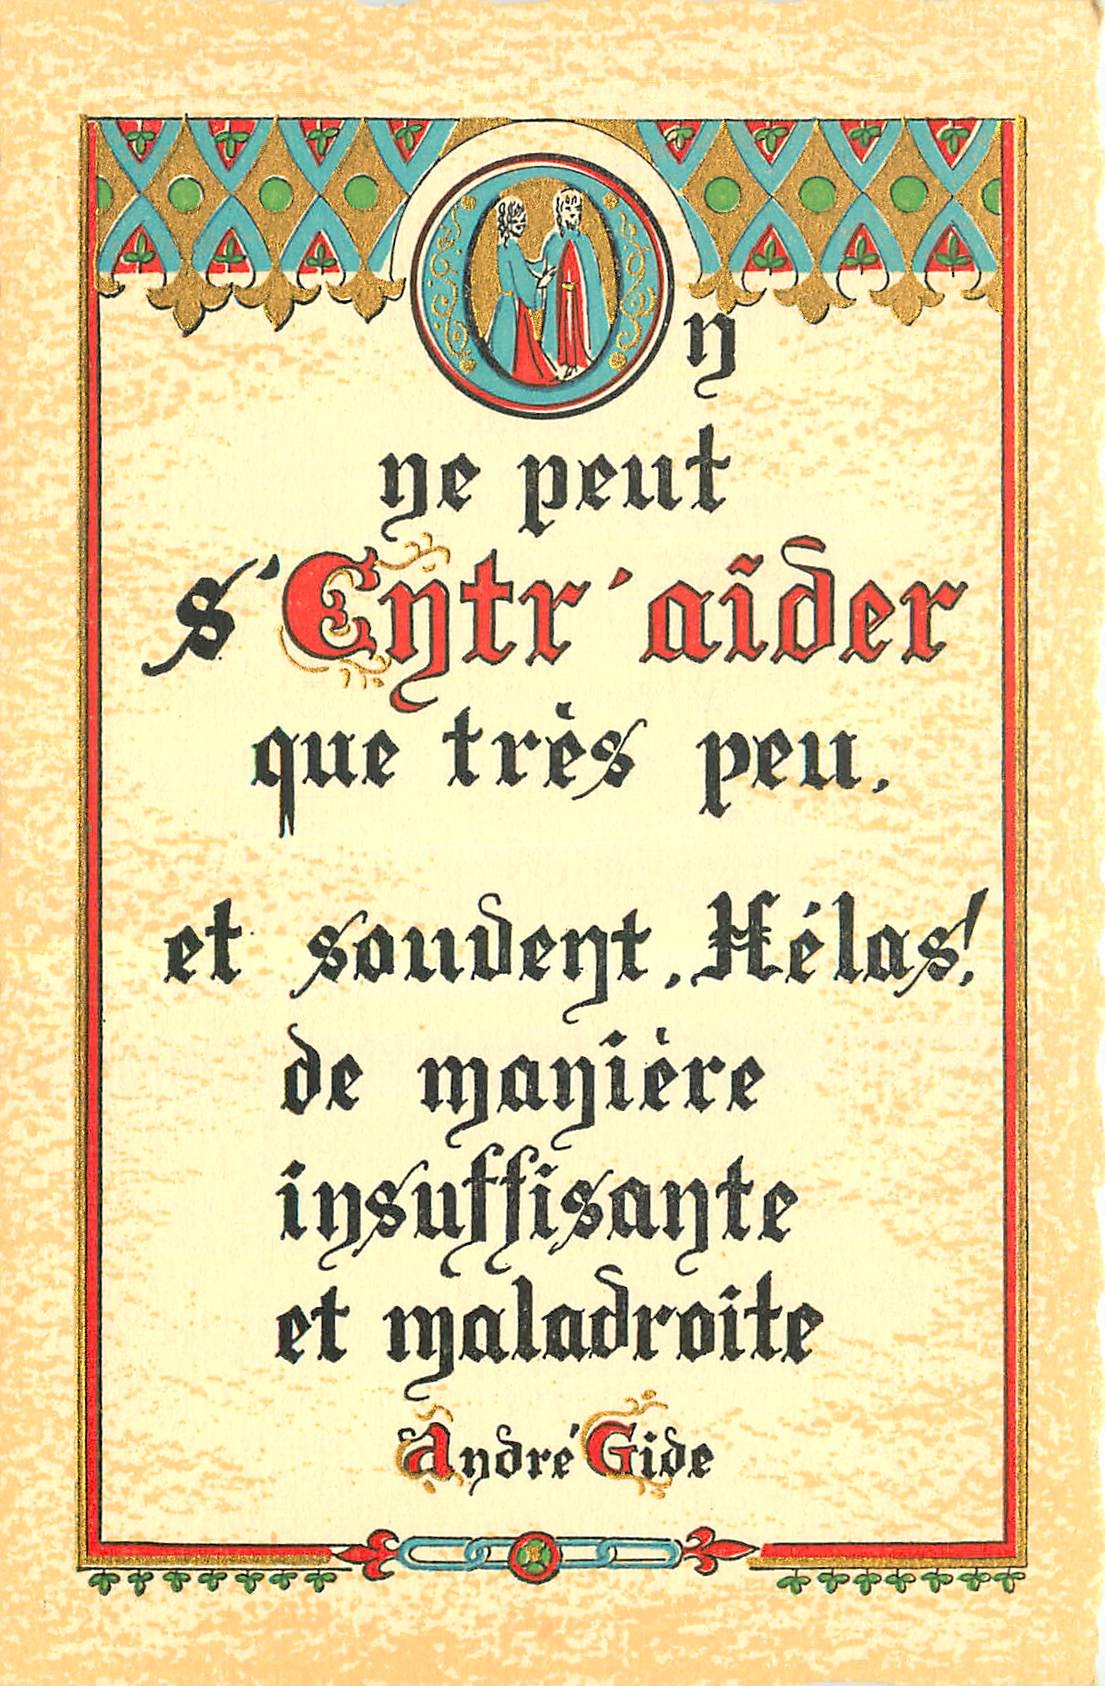 On
ne peut
s'Entr'aider
que très peu.
et souvent, Hélas!
de manière
insuffisante
et maladroite
André Gide